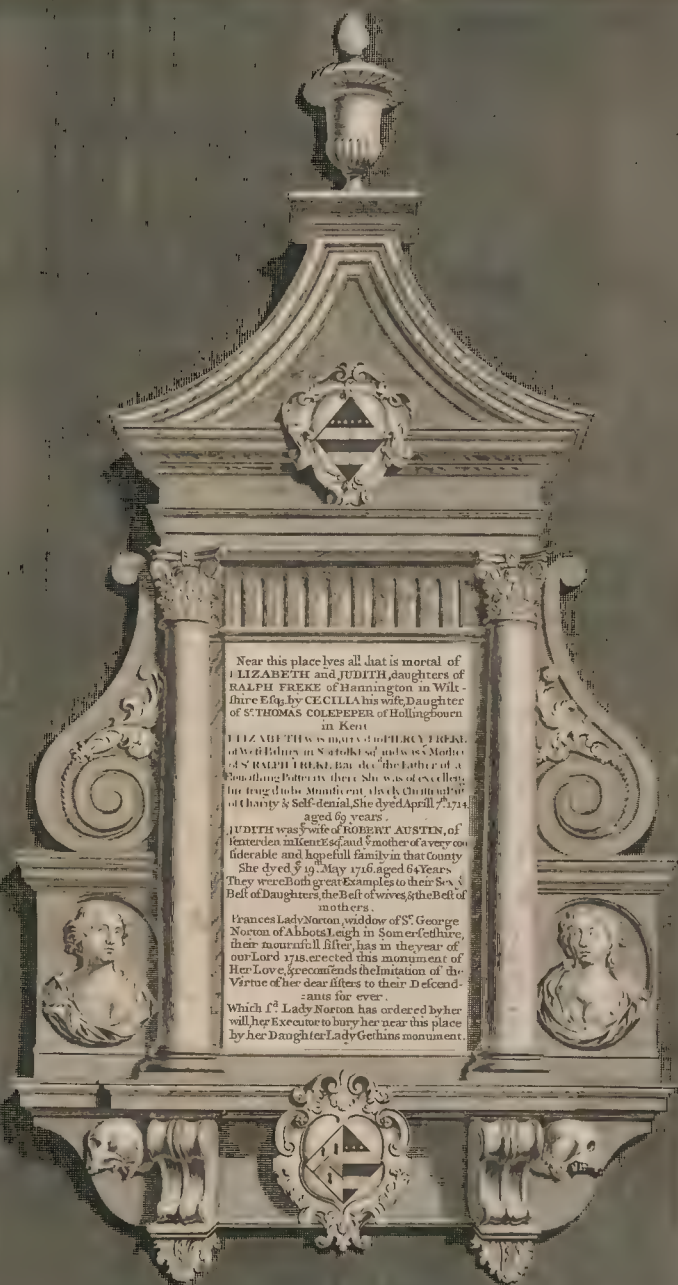 Near this place lyes all that is mortal of
ELIZABETH and JUDITH, daughters of
RALPH FREKE of Hannington in Wilt-
shire Esqr. by CECILIA his wife, Daughter
of Sr. THOMAS COLEPEPER of Hollingbourn
in Kent
ELIZABETH was married to PERCY FREKE
of West Bilney in Norfolk Esqr. and was ye Mother
of Sr. RALPH FREKE Bar. the Father of a
Flourishing Posterity there She was of excellent
to be Munificent,
of Charity & Self-denial, She dyed Aprill 7th. 1714.
aged 69 years.
JUDITH was ye wife of ROBERT AUSTIN, of
Tenterden in Kent Esqr. and ye mother of a very con
siderable and hopefull family in that County
She dyed ye 19th. May 1716. aged 64 Years
They were Both great Examples to their Sex, ye
Best of Daughters, the Best of wives, & the Best of
mothers.
Frances Lady Norton, widdow of Sr. George
Norton of Abbots Leigh in Somersetshire,
their mournfull sister, has in the year of
our Lord 1718. erected this monument of
Her Love, & recom̄ends the Imitation of the
Virtue of her dear sisters to their Descend-
=ants for ever.
Which sd. Lady Norton has ordered by her
will, her Executor to bury her near this place
by her Daughter Lady Gethins monument.